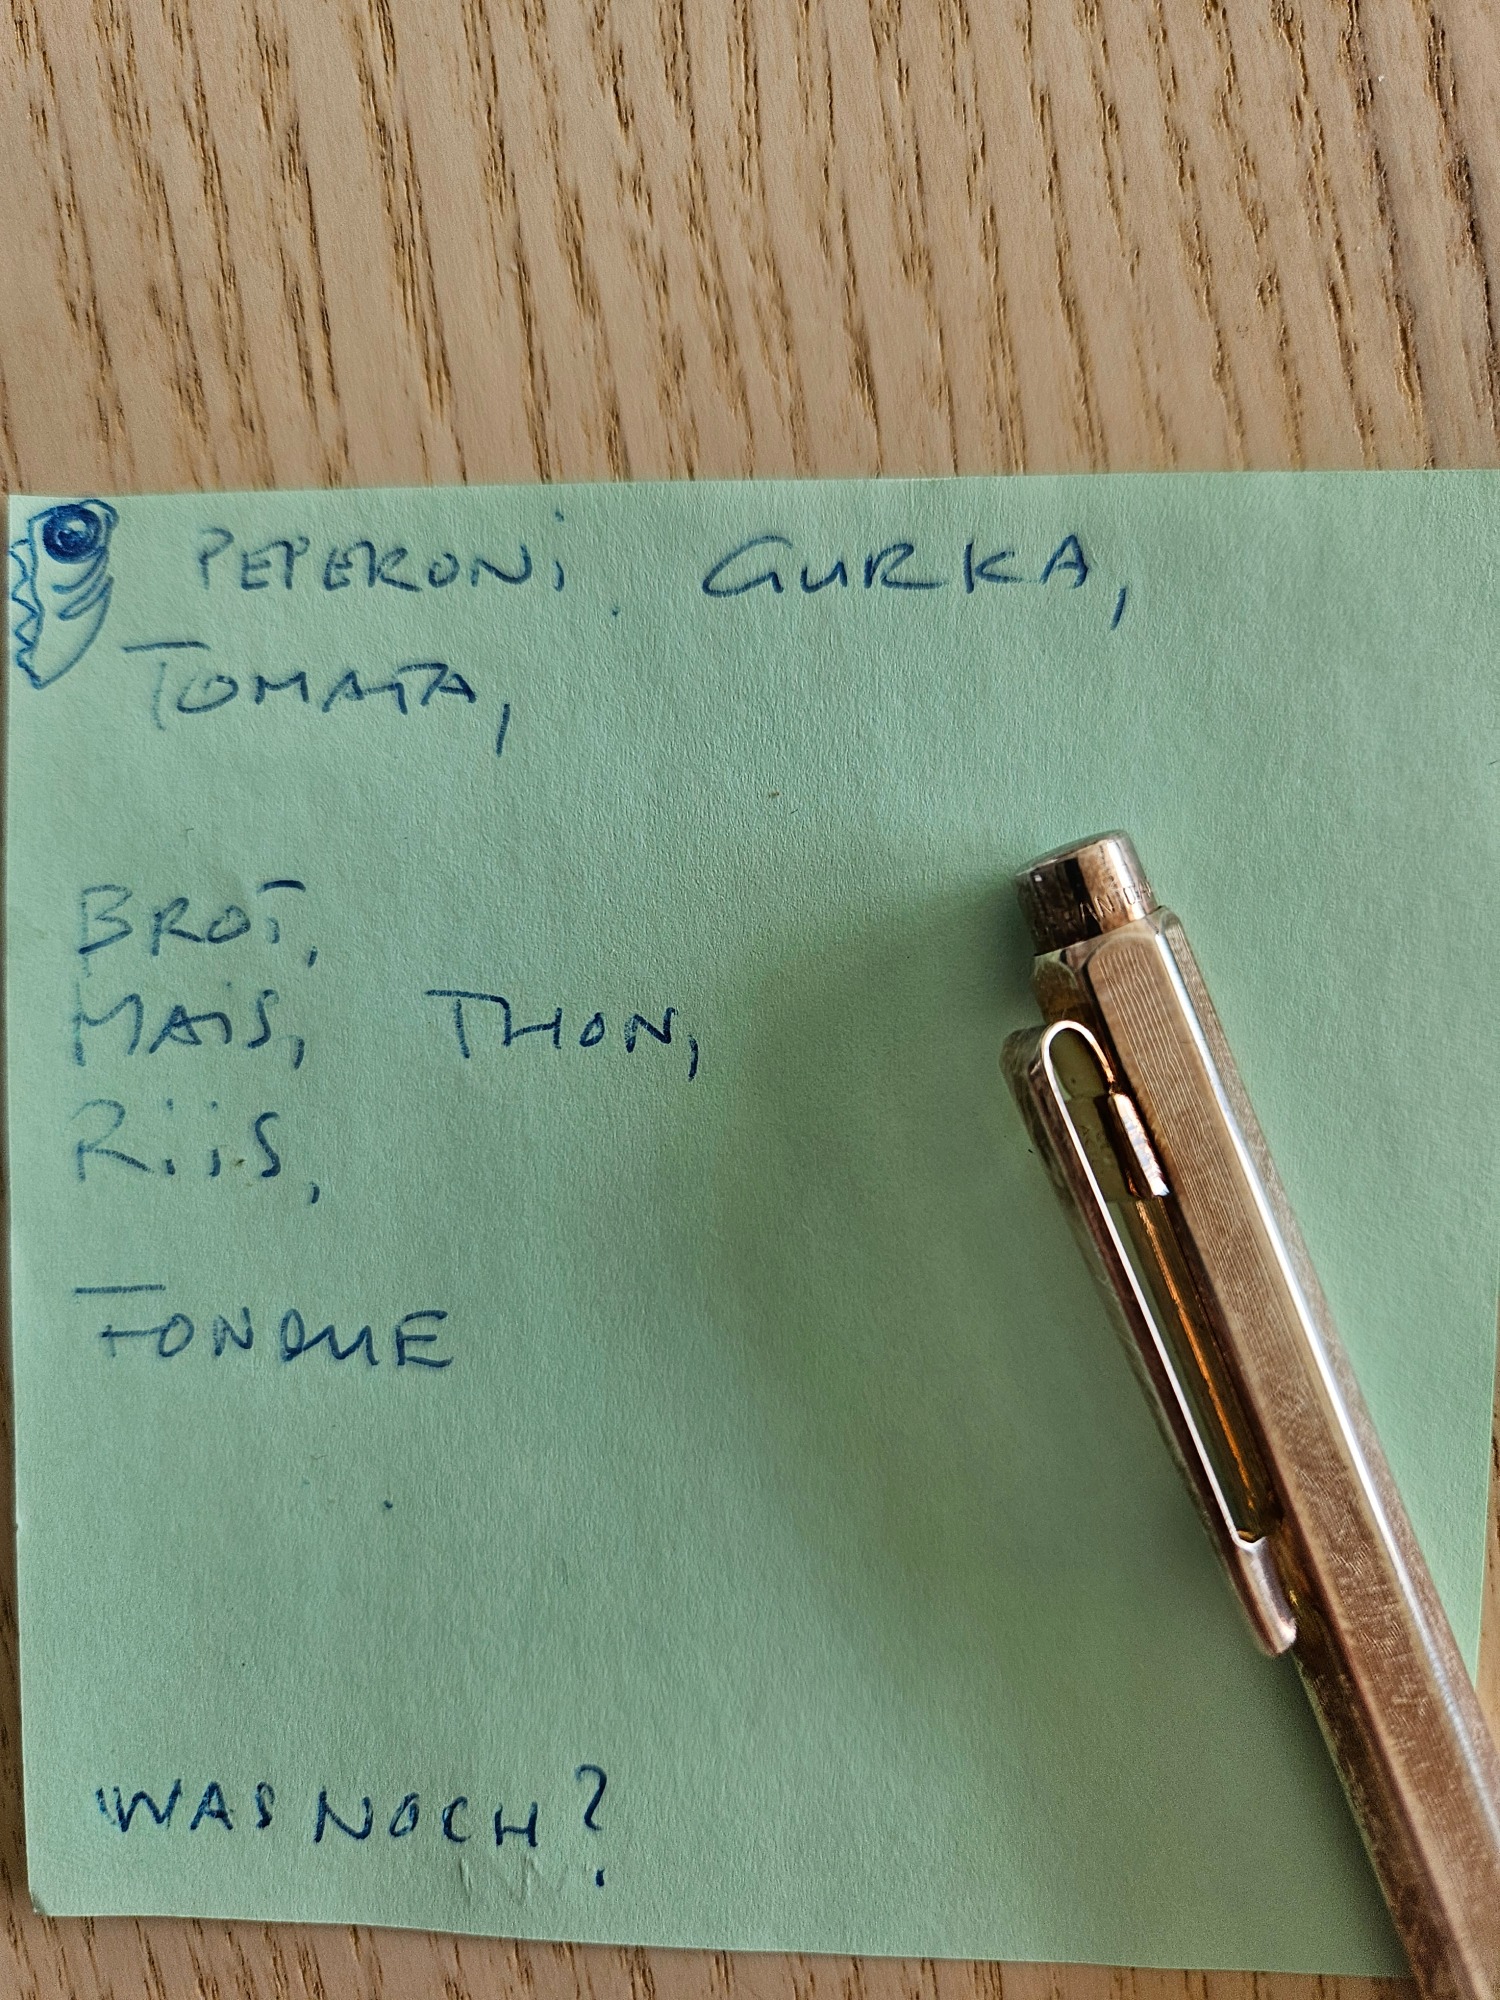 PEPERONi GURKA,
TOMATA,
BROT,
MAiS, THON,
RiiS,
FONDUE
WAS NOCH?